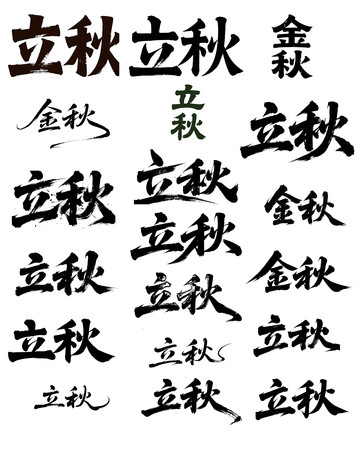 立秋
立秋
金
秋
金秋
立
秋
立秋
立秋
立秋
金秋
立秋
立秋
立秋
金秋
立秋
立秋
立秋
立秋
立秋
立秋